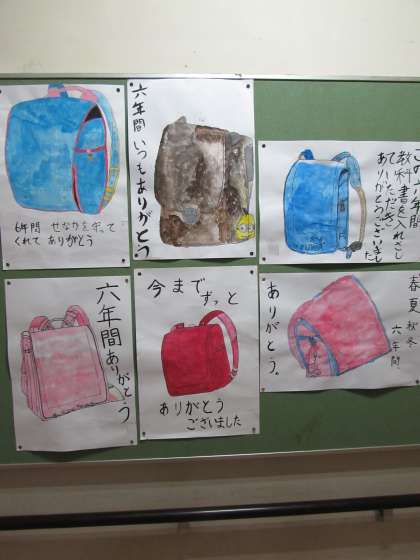 6年間 せなかを守って
くれて ありがとう
六年間 いつもありがとう
この六年間
教科書を入れさし
ていただき
ありがとうございまし
た
六年間
ありがとう
今まで
ずっと
ありがとう
ございました
春夏秋冬
六年間
ありがとう。